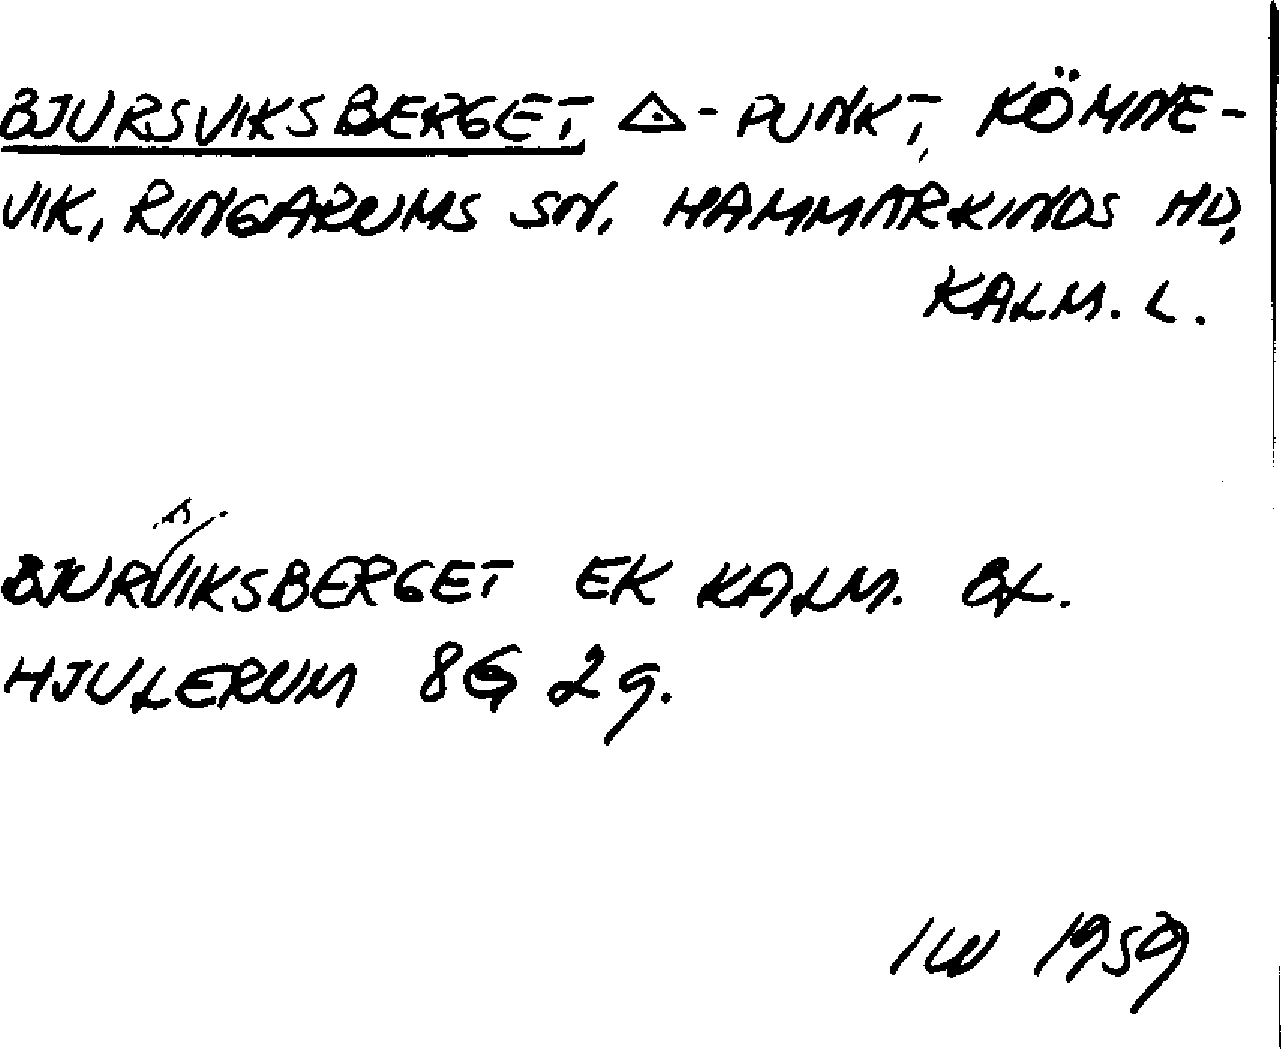 BJURSVIKSBERGET, △-PUNKT, KÖMNE-
VIK, RINGARUMS SN. HAMMARKINDS HD,
KALM. L.
s
BJURVIKSBERGET EK KALM. BL.
HJULERUM 8G 2g.
IW 1959